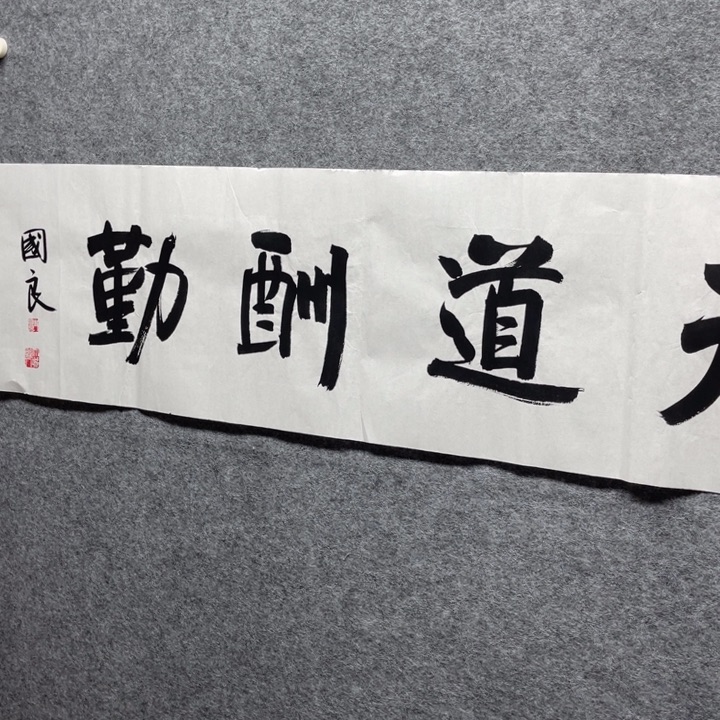 天道酬勤
國良